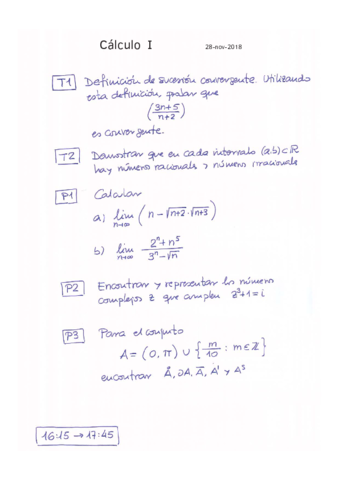 Cálculo I 28-nov-2018
T1 Definición de sucesión convergente. Utilizando
esta definición, probar que
(3n+5 / n+2)
es convergente.
T2 Demostrar que en cada intervalo (a,b) ⊂ ℝ
hay números racionales y números irracionales
P1 Calcular
a) lim n→∞ (n - √n+2 · √n+3)
b) lim n→∞ 2ⁿ + n⁵ / 3ⁿ - √n
P2 Encontrar y representar los números
complejos z que cumplen z³+1=i
P3 Para el conjunto
A = (0, π) ∪ { m/10 : m ∈ ℤ }
encontrar Å, ∂A, A̅, A' y Aᵌ
16:15 → 17:45